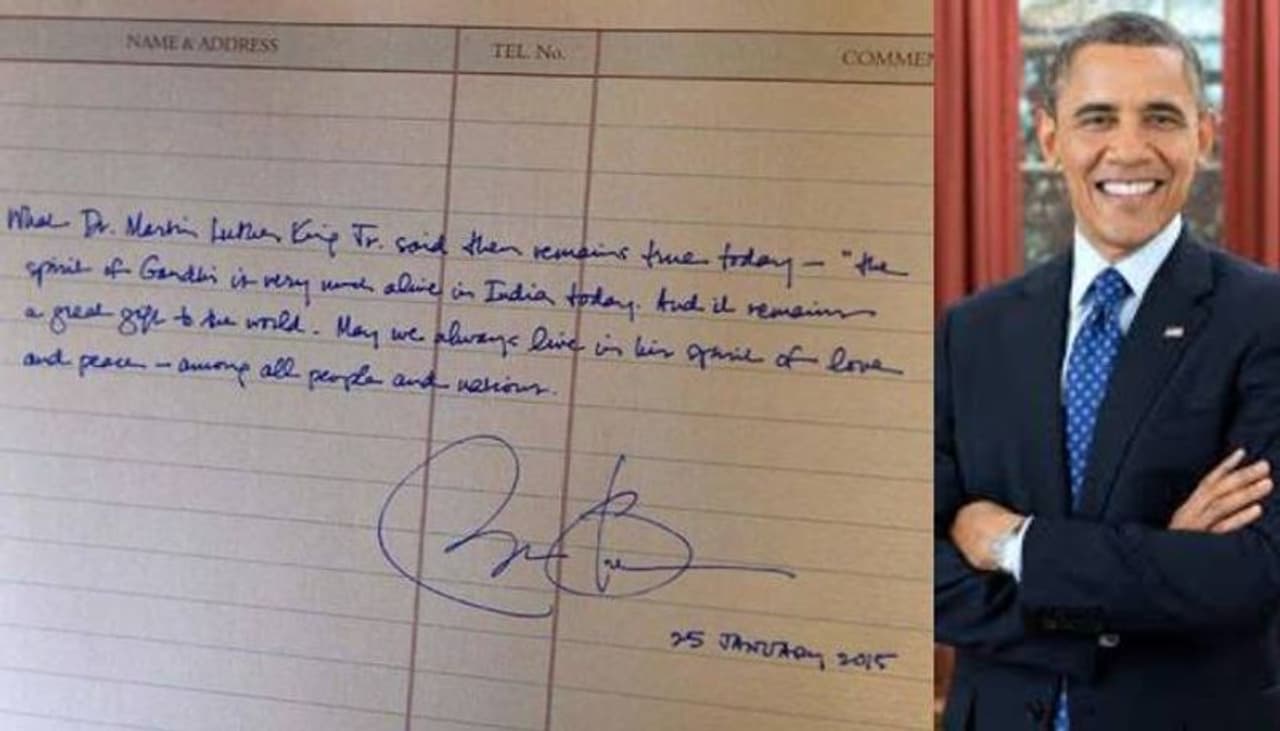 NAME & ADDRESS TEL. No. COMMEN
What Dr. Martin Luther King Jr. said then remains true today — "the
spirit of Gandhi is very much alive in India today. And it remains
a great gift to the world. May we always live in his spirit of love
and peace — among all people and nations.
25 JANUARY 2015